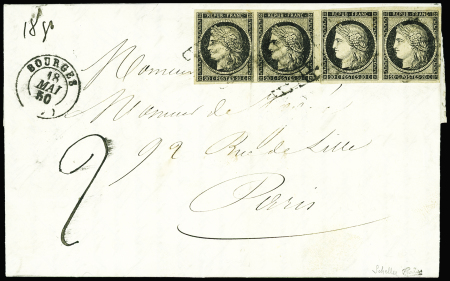 1850
REPUB. FRANC. REPUB. FRANC. REPUB. FRANC. REPUB. FRANC.
20 C. POSTES 20 C. 20 C. POSTES 20 C. 20 C. POSTES 20 C. 20 C. POSTES 20 C.
BOURGES
18
MAI
50
Monsieur
Monsieur de
92 Rue de Lille
Paris
2